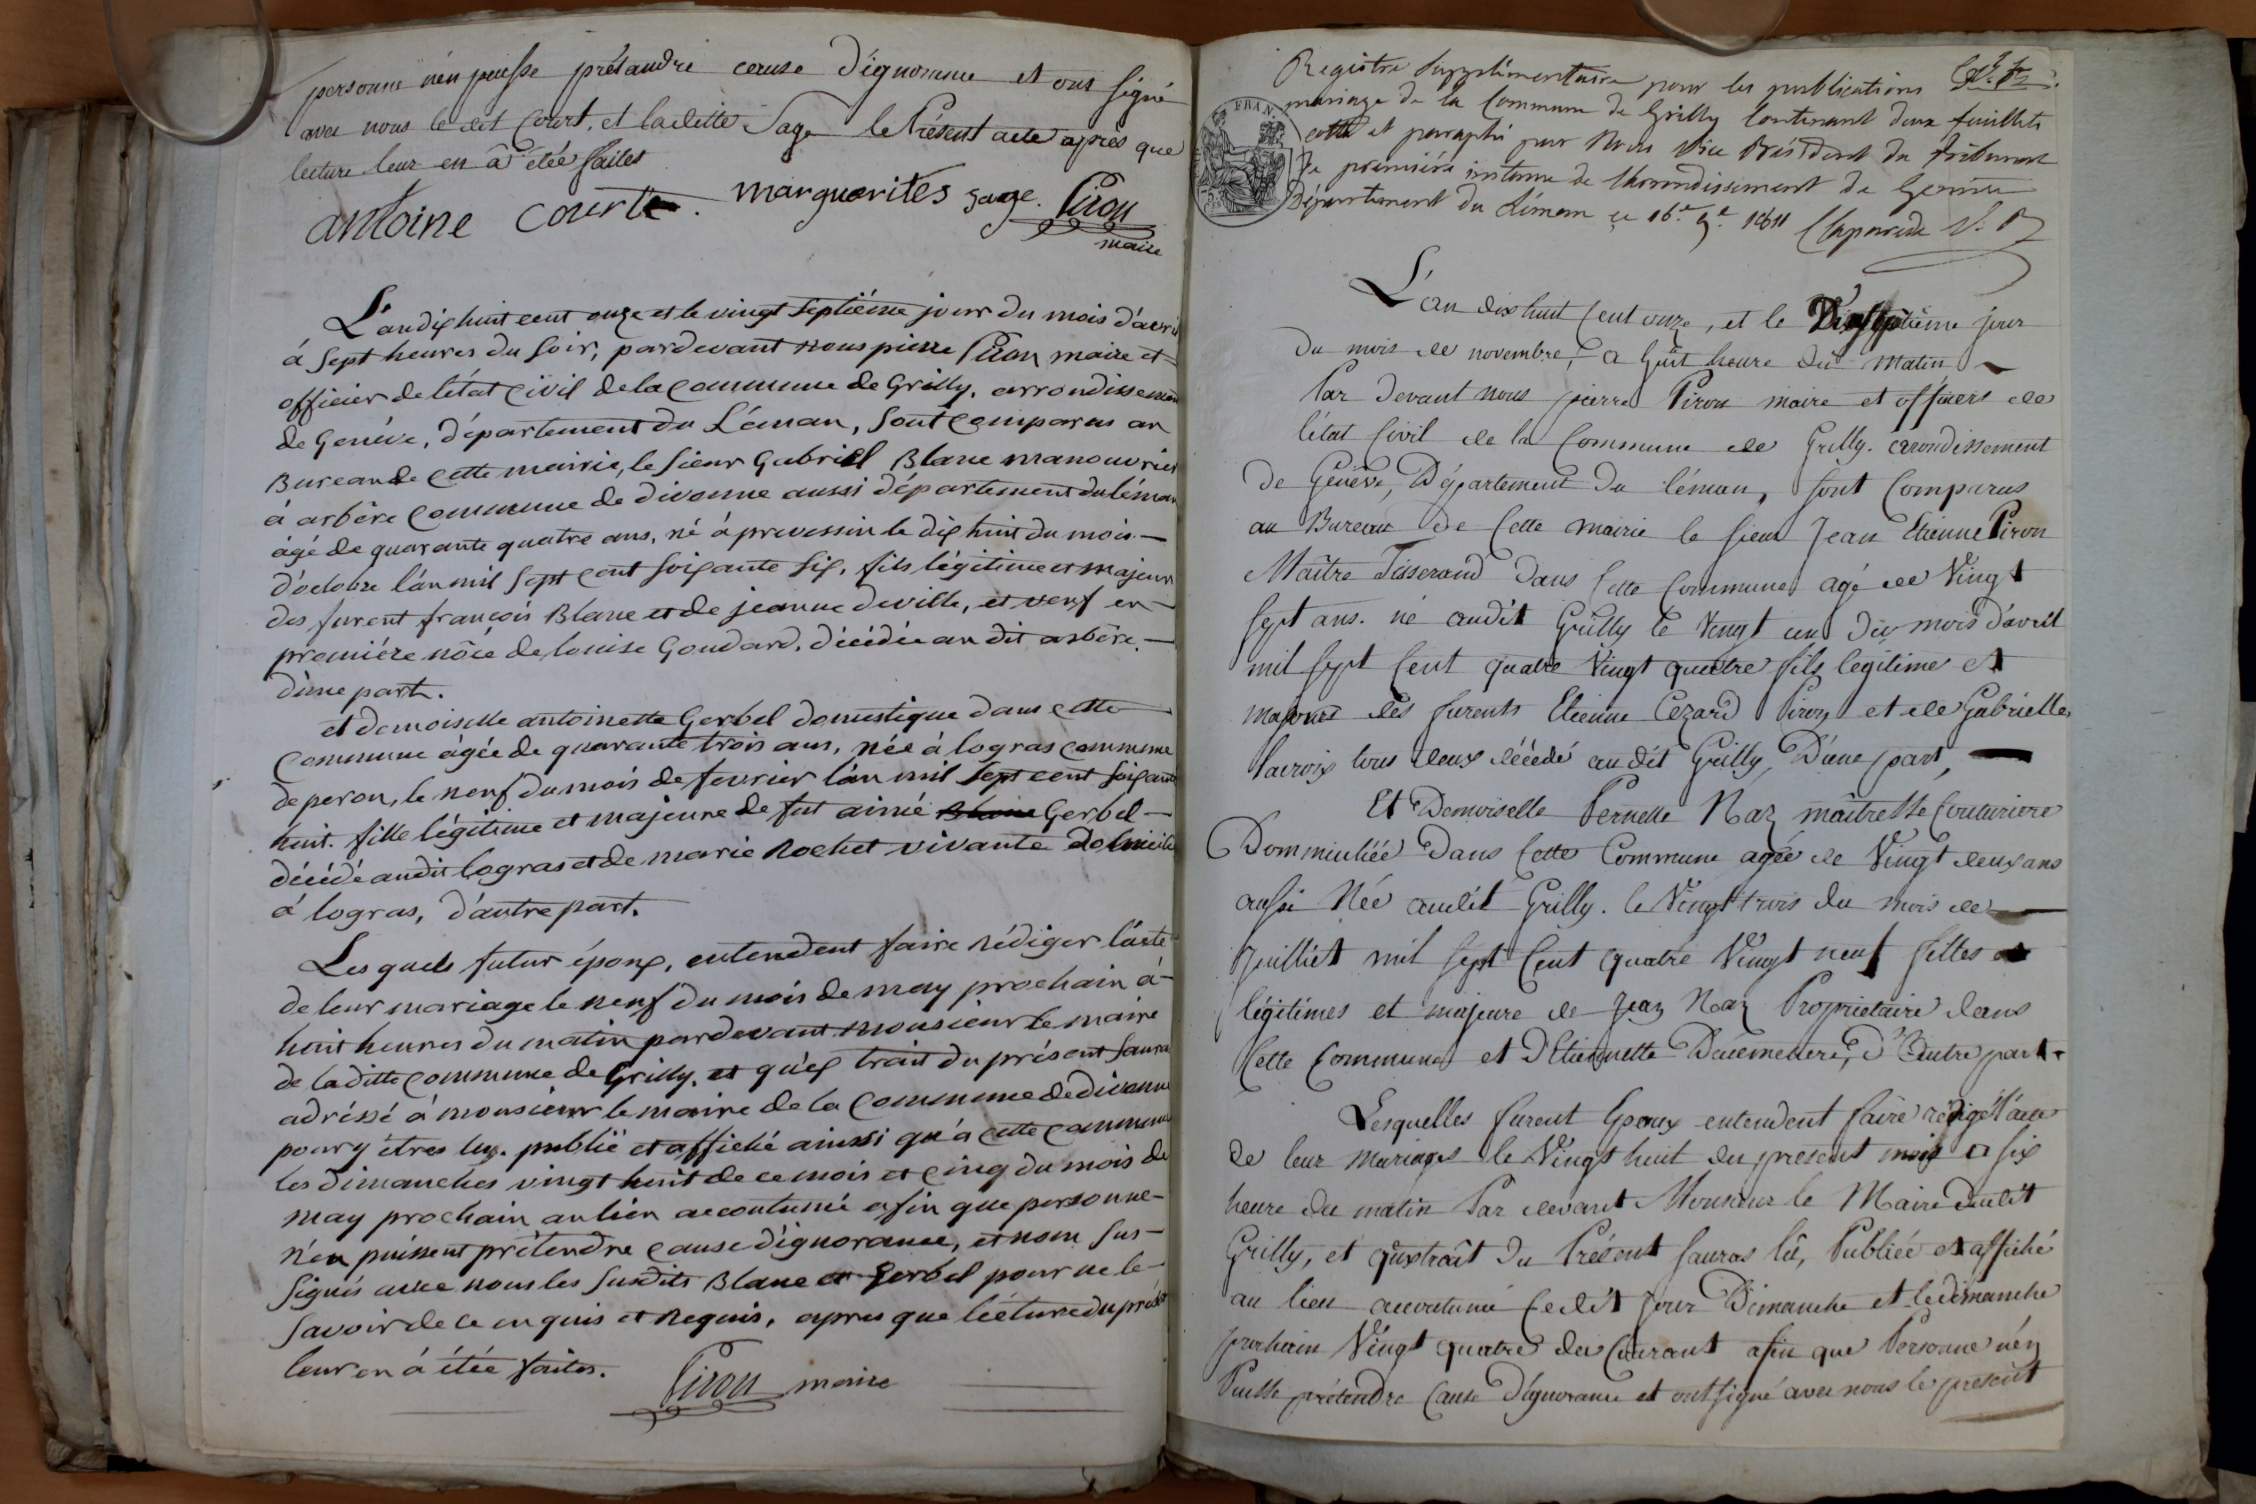 personne n'en puisse prétandre cause d'ignorance et ont signé
avec nous le dit Court, et la ditte Sage le Présent acte après que
lecture leur en â étée faites
antoine courte. marguerites sage. Piron
maire
L'an dix huit cent onze et le vingt septiéme jour du mois d'avril
à sept heures du soir, pardevant nous pierre Piron maire et
officier de létat civil de la commune de Grilly, arrondissement
de Genéve, département du Léman, sont comparus au
Bureau de cette mairie, le sieur Gabriel Blanc manouvrier
à arbère commune de divonne aussi département du léman
âgé de quarante quatre ans, né à prevessin le dix huit du mois
d'octobre l'an mil sept cent soixante six, fils légitime et majeur
des furent françois Blanc et de jeanne deville, et veuf en
premiére nôce de louise Goudard, décédée au dit arbère,
d'une part.
et demoiselle antoinette Gerbel domestique dans cette
commune âgée de quarante trois ans, née à logras commune
de peron, le neuf du mois de fevrier l'an mil sept cent soixante
huit. fille légitime et majeure de fut aimé Gerbel
décédé audit logras et de marie Rochet vivante domiciliée
à logras, d'autre part.
Les quels futur époux, entendent faire Rédiger l'acte
de leur mariage le neuf du mois de may prochain à
huit heures du matin pardevant monsieur le maire
de la ditte commune de Grilly, et qu'ex trait du présent saura
adréssé à monsieur le maire de la commune de divonne
pour y êtres lux. publié et affiché ainssi qu'à cette commune
les dimanches vingt huit de ce mois et cinq du mois de
may prochain au lieu accoutumé afin que personne
n'en puissent prétendre cause d'ignorance, et nom sus-
signés avec nous les susdits Blanc et Gerbel pour ne le
savoir de ce en quis et Requis, apres que lécture du présent
leur en â étée faites. Piron maire
Registre Supplémentaire pour les publications
mariage de la Commune de Grilly Contenant deux feuillets
cotté et paraphé par Nous Vice Président du Tribunal
De premiére instance de l'arrondissement de Genéve
Département du Léman ce 16.e 9.e 1811 Claparede V. P.
FRAN.
L'an dix huit Cent onze, et le Dix septième jour
du mois de novembre, a huit heure du matin
Par devant nous pierre Piron maire et officiers de
l'état Civil de la Commune de Grilly. arondissement
De Genève, Département Du léman, sont Comparus
au Bureau de Cette mairie le sieur Jean Etienne Piron
Maître Tisserand Dans Cette Commune agé de Vingt
sept ans. né audit Grilly le Vingt un Du mois d'avril
mil sept Cent quatre Vingt quatre fils legitime et
majeurs des furents Etienne Cezard Piron et de Gabrielle
Lacroix tous deux décédé au dit Grilly, D'une part,
Et Demoiselle Pernette Naz maîtresse Couturiere
Dommiciliée Dans Cette Commune agée de Vingt deux ans
aussi Née audit Grilly. le Vingt trois du mois de
Juilliet mil sept Cent quatre Vingt neuf filles
légitimes et majeure de Jean Naz Propriétaire dans
Cette Commune et D'Etiennette D'autre part.
Lesquelles furent Epoux entendent faire rédigé l'acte
de leur mariages le Vingt huit du présent mois a six
heure du matin Par devant Monsieur le Maire dudit
Grilly, et qu'extrait du Présent sauras lû, Publiée et affiché
au lieu accoutumé Cedit jour Dimanche et le dimanche
prochain Vingt quatre du Courant afin que Personne n'en
Puisse prétendre Cause D'ignorance et ont signé avec nous le présent